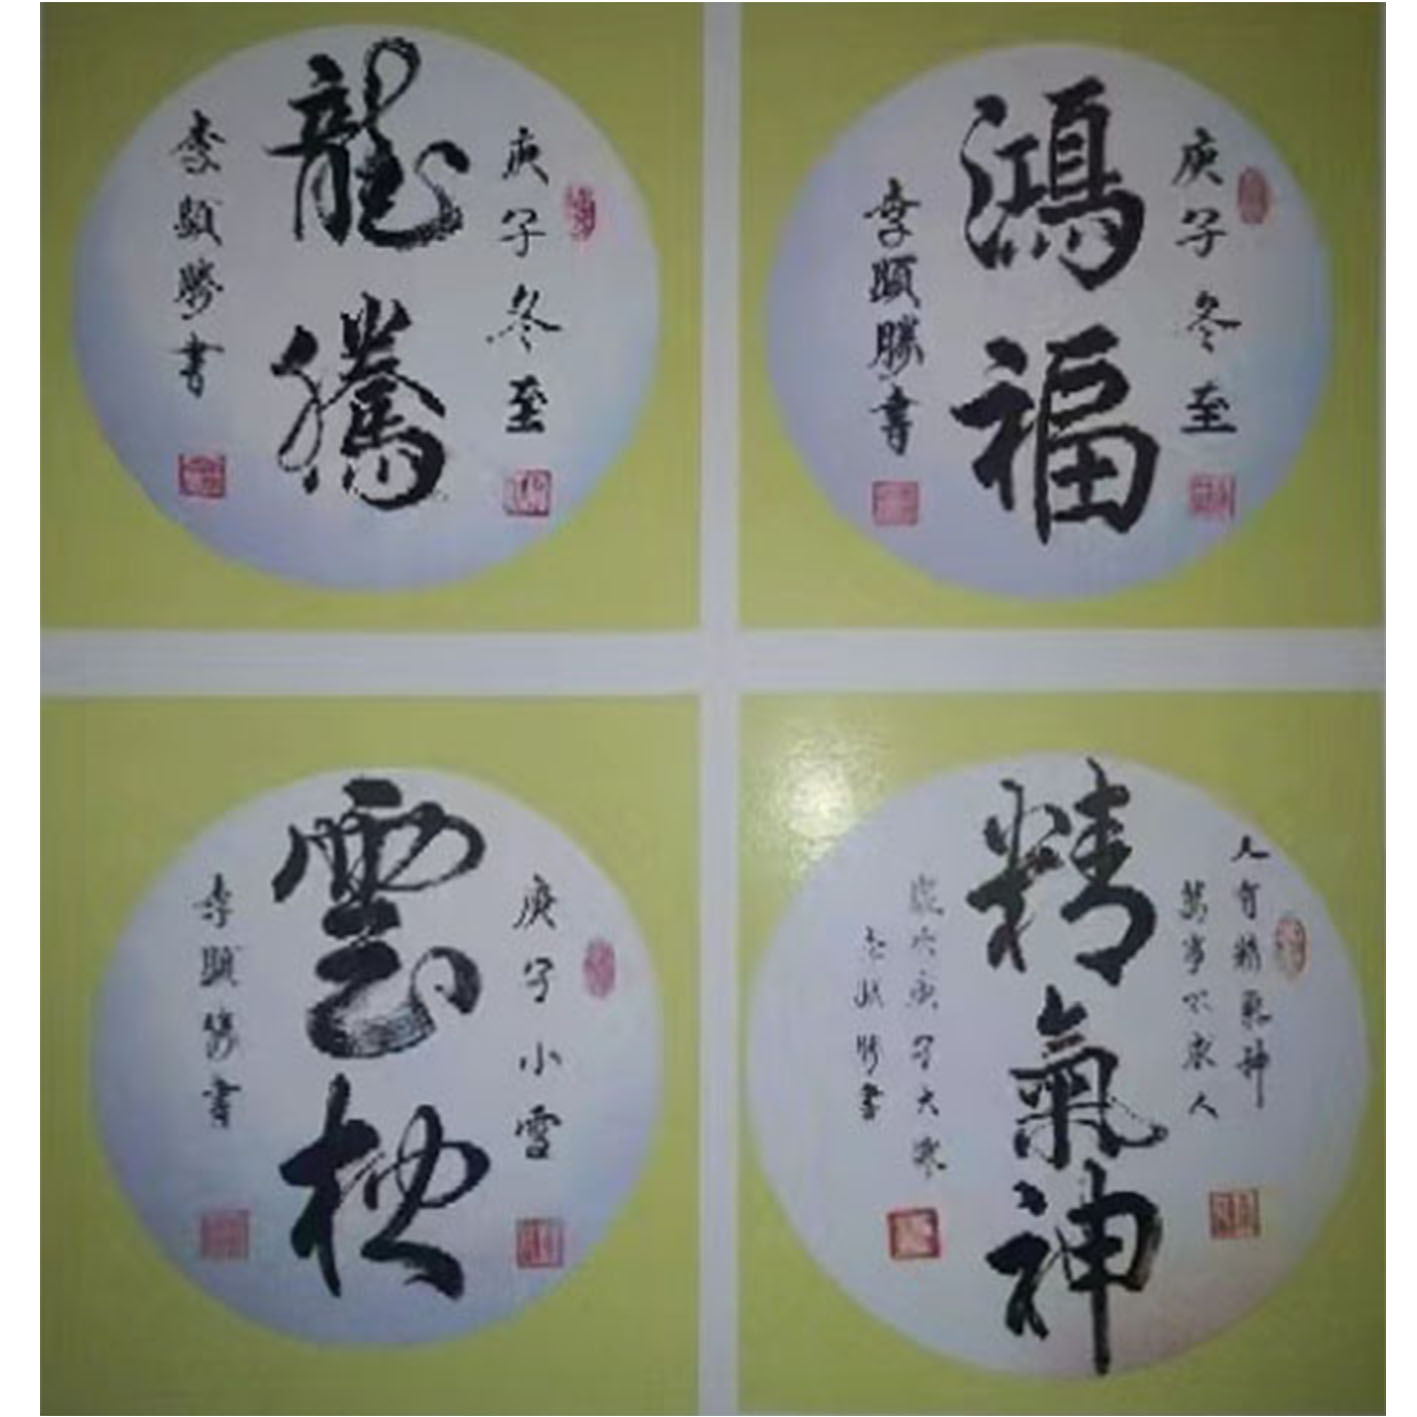 庚子冬至
龍騰
李顯勝書
庚子冬至
鴻福
李顯勝書
庚子小雪
雲枕
李顯勝書
人有精氣神
萬事不求人
歲次庚子大寒
李顯勝書
精氣神